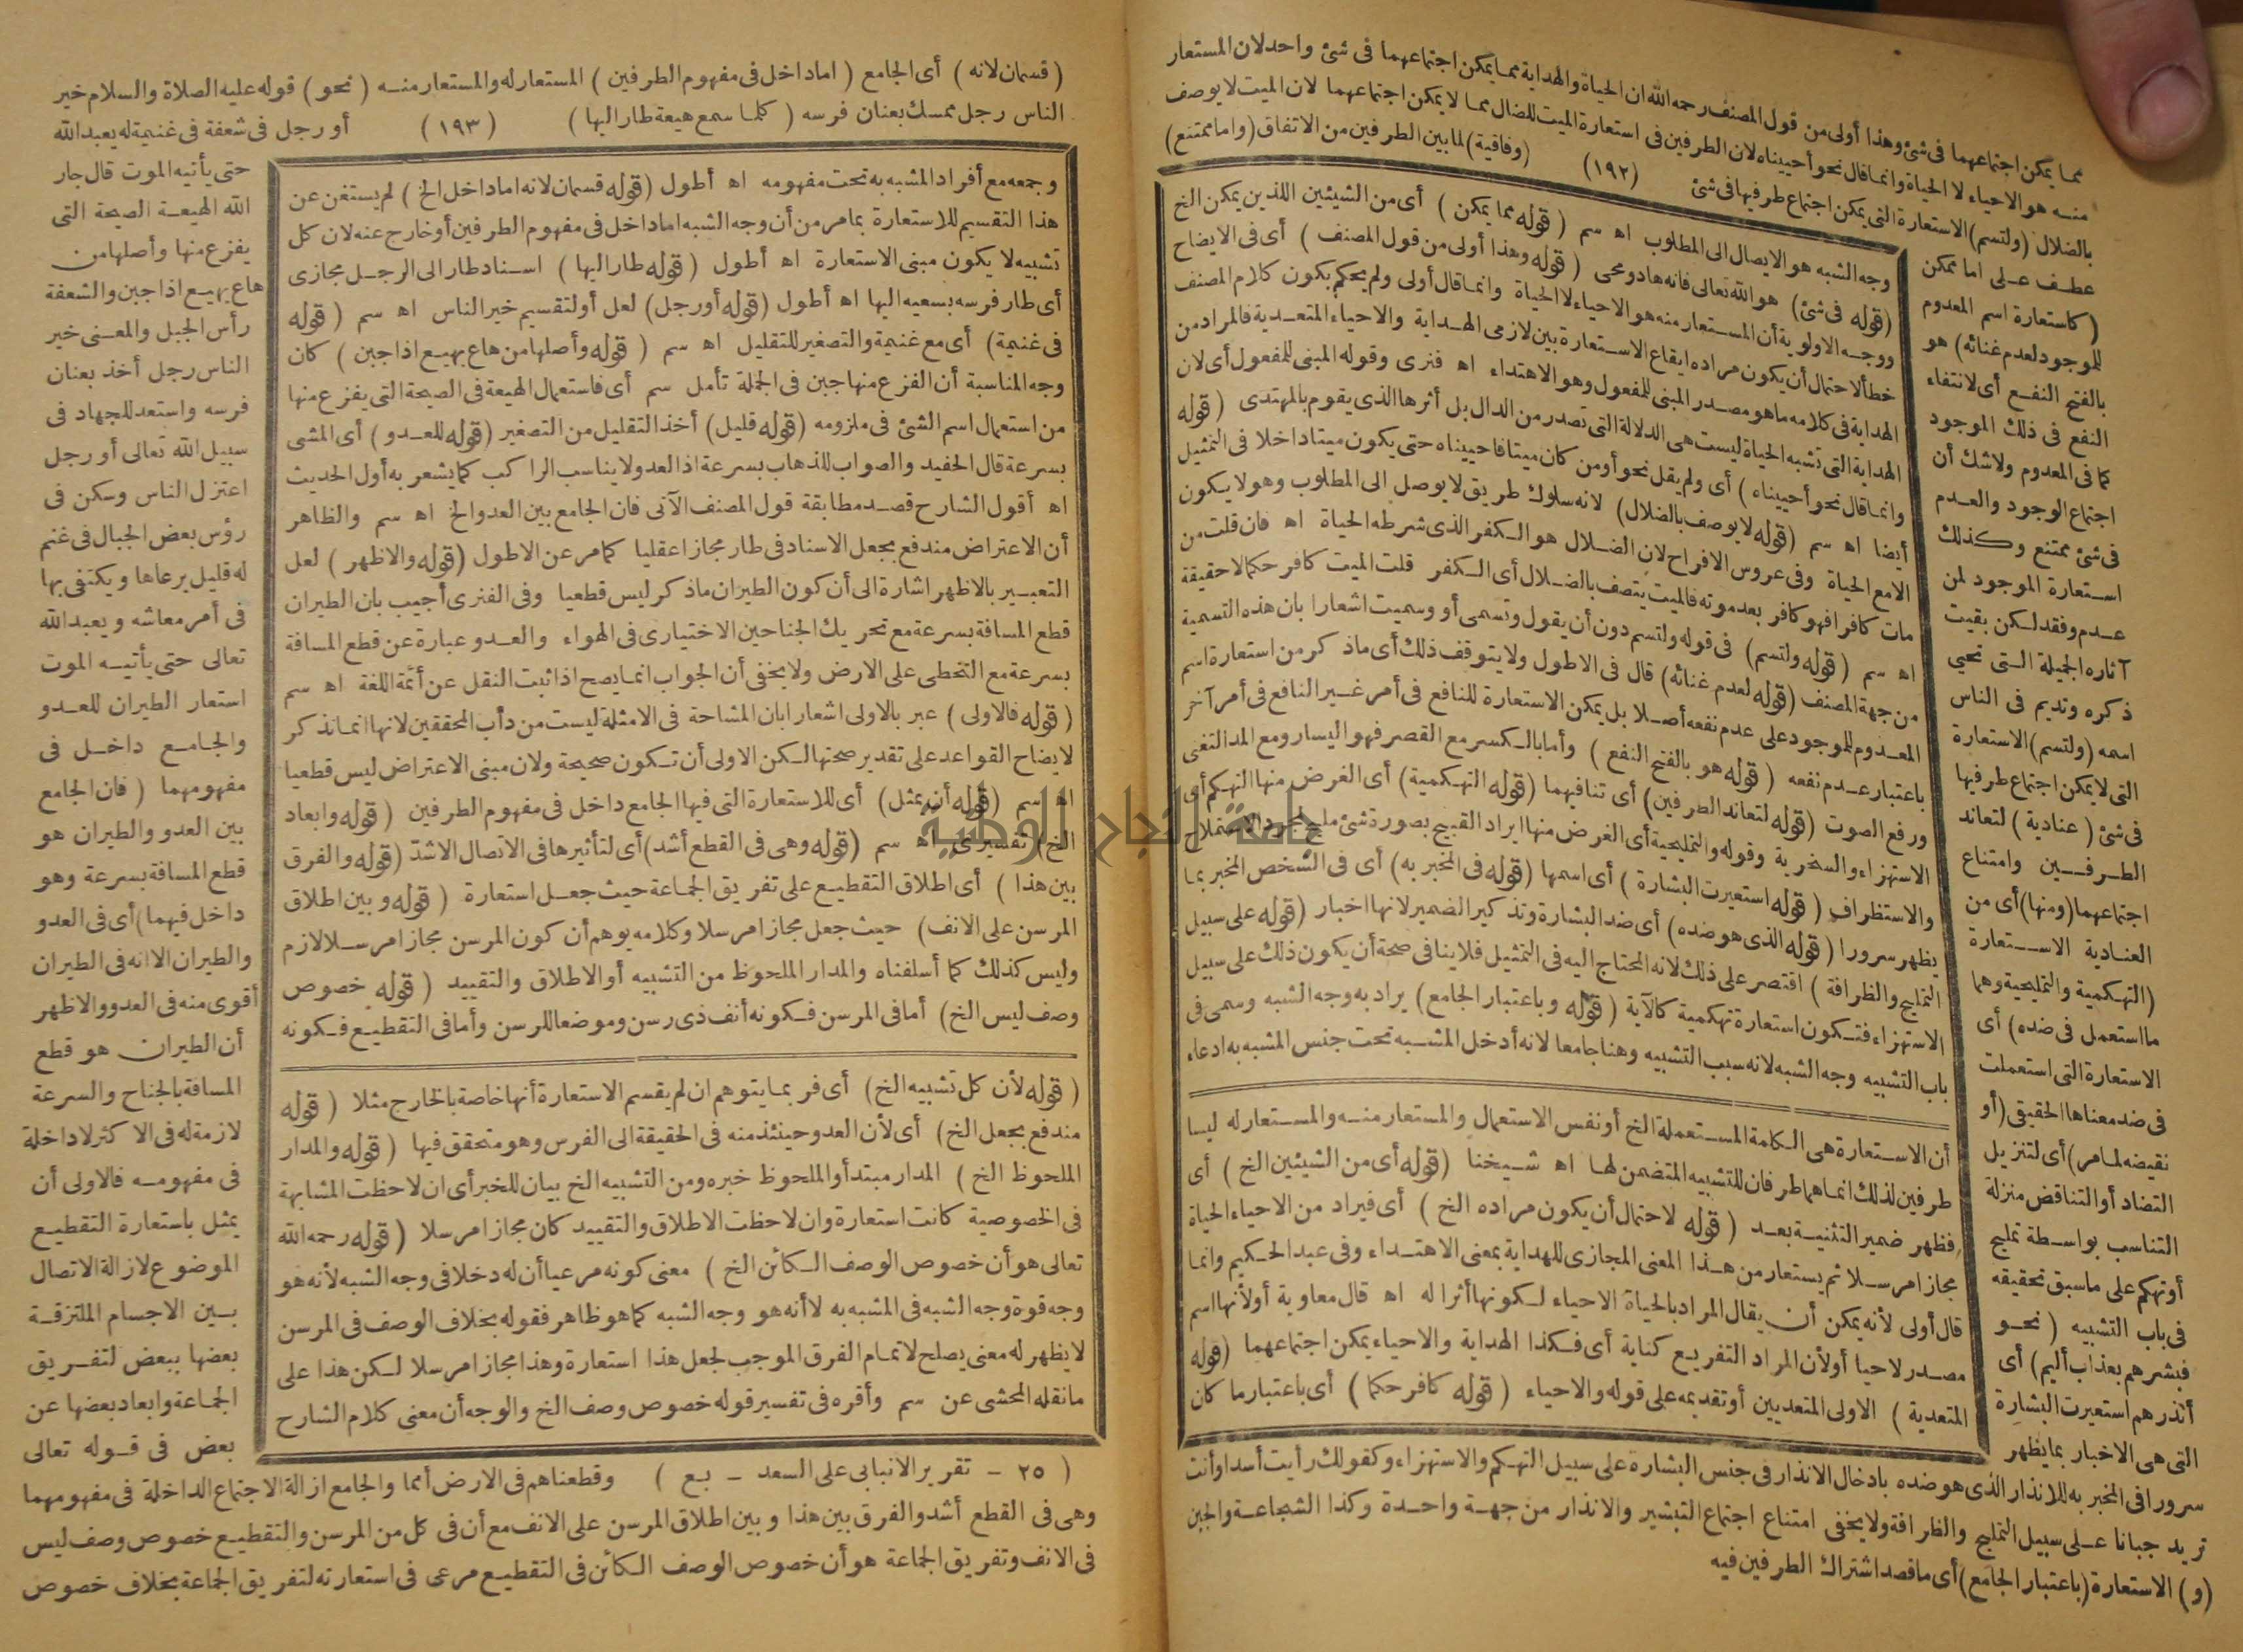 مما يمكن اجتماعهما فى شئ وهذا أولى من قول المصنف رحمه الله ان الحياة والهداية مما يمكن اجتماعهما فى شئ واحد لان المستعار
منه هو الاحياء لا الحياة وانما قال نحو أحييناه لان الطرفين فى استعارة الميت للضال مما لا يمكن اجتماعهما لان الميت لا يوصف
بالضلال (ولتسم) الاستعارة التى يمكن اجتماع طرفيها فى شئ (١٩٢) (وفاقية) لما بين الطرفين من الاتفاق (واما ممتنع)
عطف على اما ممكن
(كاستعارة اسم المعدوم
للموجود لعدم غنائه) هو
بالفتح النفع أى لانتفاء
النفع فى ذلك الموجود
كما فى المعدوم ولا شك أن
اجتماع الوجود والعدم
فى شئ ممتنع وكذلك
استعارة الموجود لمن
عدم وفقد لكن بقيت
آثاره الجميلة التى تحيى
ذكره وتديم فى الناس
اسمه (ولتسم) الاستعارة
التى لا يمكن اجتماع طرفيها
فى شئ (عنادية) لتعاند
الطرفين وامتناع
اجتماعهما (ومنها) أى من
العنادية الاستعارة
(التهكمية والتمليحية وهما
ما استعمل فى ضده) أى
الاستعارة التى استعملت
فى ضد معناها الحقيقى (أو
نقيضه لما مر) أى لتنزيل
التضاد أو التناقض منزلة
التناسب بواسطة تمليح
أو تهكم على ما سبق تحقيقه
فى باب التشبيه (نحو
فبشرهم بعذاب أليم) أى
أنذرهم استعيرت البشارة
التى هى الاخبار بما يظهر
سرورا فى المخبر به للانذار الذى هو ضده بادخال الانذار فى جنس البشارة على سبيل التهكم والاستهزاء وكقولك رأيت أسدا وأنت
تريد جبانا على سبيل التمليح والظرافة ولا يخفى امتناع اجتماع التبشير والانذار من جهة واحدة وكذا الشجاعة والجبن
(و) الاستعارة (باعتبار الجامع) أى ما قصد اشتراك الطرفين فيه
وجه الشبه هو الايصال الى المطلوب اه سم (قوله مما يمكن) أى من الشيئين اللذين يمكن الخ
(قوله فى شئ) هو الله تعالى فانه هاد ومحى (قوله وهذا أولى من قول المصنف) أى فى الايضاح
ووجه الاولوية أن المستعار منه هو الاحياء لا الحياة وانما قال أولى ولم يحكم بكون كلام المصنف
خطأ لاحتمال أن يكون مراده ايقاع الاستعارة بين لازمى الهداية والاحياء المتعدية فالمراد من
الهداية فى كلامه ما هو مصدر المبنى للمفعول وهو الاهتداء اه فنرى وقوله المبنى للمفعول أى لان
الهداية التى تشبه الحياة ليست هى الدلالة التى تصدر من الدال بل أثرها الذى يقوم بالمهتدى (قوله
وانما قال نحو أحييناه) أى ولم يقل نحو أومن كان ميتا فاحييناه حتى يكون ميتا داخلا فى التمثيل
أيضا اه سم (قوله لا يوصف بالضلال) لانه سلوك طريق لا يوصل الى المطلوب وهو لا يكون
الا مع الحياة وفى عروس الافراح لان الضلال هو الكفر الذى شرطه الحياة اه فان قلت من
مات كافرا فهو كافر بعد موته فالميت يتصف بالضلال أى الكفر قلت الميت كافر حكما لا حقيقة
اه سم (قوله ولتسم) فى قوله ولتسم دون أن يقول وتسمى أو وسميت اشعارا بان هذه التسمية
من جهة المصنف (قوله لعدم غنائه) قال فى الاطول ولا يتوقف ذلك أى ما ذكر من استعارة اسم
المعدوم للموجود على عدم نفعه أصلا بل يمكن الاستعارة للنافع فى أمر غير النافع فى أمر آخر
باعتبار عدم نفعه (قوله هو بالفتح النفع) وأما بالكسر مع القصر فهو اليسار ومع المد التغنى
ورفع الصوت (قوله لتعاند الطرفين) أى تنافيهما (قوله التهكمية) أى الغرض منها التهكم أى
الاستهزاء والسخرية وقوله والتمليحية أى الغرض منها ايراد القبيح بصورة شئ مليح لمجرد الاستملاح
والاستظراف (قوله استعيرت البشارة) أى اسمها (قوله فى المخبر به) أى فى الشخص المخبر بما
يظهر سرورا (قوله الذى هو ضده) أى ضد البشارة وتذكير الضمير لانها اخبار (قوله على سبيل
التمليح والظرافة) اقتصر على ذلك لانه المحتاج اليه فى التمثيل فلا ينافى صحة أن يكون ذلك على سبيل
الاستهزاء فتكون استعارة تهكمية كالآية (قوله وباعتبار الجامع) يراد به وجه الشبه وسمى فى
باب التشبيه وجه الشبه لانه سبب التشبيه وهنا جامعا لانه أدخل المشبه تحت جنس المشبه به ادعاء
أن الاستعارة هى الكلمة المستعملة الخ أو نفس الاستعمال والمستعار منه والمستعار له ليسا
طرفين لذلك انما هما طرفان للتشبيه المتضمن لها اه شيخنا (قوله أى من الشيئين الخ) أى
فظهر ضمير التثنية بعد (قوله لاحتمال أن يكون مراده الخ) أى فيراد من الاحياء الحياة
مجازا مرسلا ثم يستعار من هذا المعنى المجازى للهداية بمعنى الاهتداء وفى عبد الحكيم وانما
قال أولى لأنه يمكن أن يقال المراد بالحياة الاحياء لكونها أثرا له اه قال معاوية أو لأنها اسم
مصدر لاحيا أو لأن المراد التفريع كناية أى فكذا الهداية والاحياء يمكن اجتماعهما (قوله
المتعدية) الاولى المتعديين أو تقديمه على قوله والاحياء (قوله كافر حكما) أى باعتبار ما كان
(قسمان لانه) أى الجامع (اما داخل فى مفهوم الطرفين) المستعار له والمستعار منه (نحو) قوله عليه الصلاة والسلام خير
الناس رجل ممسك بعنان فرسه (كلما سمع هيعة طار اليها) (١٩٣) أو رجل فى شعفة فى غنيمة له يعبد الله
حتى يأتيه الموت قال جار
الله الهيعة الصيحة التى
يفزع منها وأصلها من
هاع يهيع اذا جبن والشعفة
رأس الجبل والمعنى خير
الناس رجل أخذ بعنان
فرسه واستعد للجهاد فى
سبيل الله تعالى أو رجل
اعتزل الناس وسكن فى
رؤس بعض الجبال فى غنم
له قليل يرعاها ويكتفى بها
فى أمر معاشه ويعبد الله
تعالى حتى يأتيه الموت
استعار الطيران للعدو
والجامع داخل فى
مفهومهما (فان الجامع
بين العدو والطيران هو
قطع المسافة بسرعة وهو
داخل فيهما) أى فى العدو
والطيران الا انه فى الطيران
أقوى منه فى العدو والاظهر
أن الطيران هو قطع
المسافة بالجناح والسرعة
لازمة له فى الاكثر لا داخلة
فى مفهومه فالاولى أن
يمثل باستعارة التقطيع
الموضوع لازالة الاتصال
بين الاجسام الملتزقة
بعضها ببعض لتفريق
الجماعة وابعاد بعضها عن
بعض فى قوله تعالى
وجمعه مع أفراد المشبه به تحت مفهومه اه أطول (قوله قسمان لانه اما داخل الخ) لم يستغن عن
هذا التقسيم للاستعارة بما مر من أن وجه الشبه اما داخل فى مفهوم الطرفين أو خارج عنه لان كل
تشبيه لا يكون مبنى الاستعارة اه أطول (قوله طار اليها) اسناد طار الى الرجل مجازى
أى طار فرسه بسعيه اليها اه أطول (قوله أو رجل) لعل أو لتقسيم خير الناس اه سم (قوله
فى غنيمة) أى مع غنيمة والتصغير للتقليل اه سم (قوله وأصلها من هاع يهيع اذا جبن) كان
وجه المناسبة أن الفزع منها جبن فى الجملة تأمل سم أى فاستعمال الهيعة فى الصيحة التى يفزع منها
من استعمال اسم الشئ فى ملزومه (قوله قليل) أخذ التقليل من التصغير (قوله للعدو) أى المشى
بسرعة قال الحفيد والصواب للذهاب بسرعة اذ العدو لا يناسب الراكب كما يشعر به أول الحديث
اه أقول الشارح قصد مطابقة قول المصنف الآتى فان الجامع بين العدو الخ اه سم والظاهر
أن الاعتراض مندفع بجعل الاسناد فى طار مجازا عقليا كما مر عن الاطول (قوله والاظهر) لعل
التعبير بالاظهر اشارة الى أن كون الطيران ماذكر ليس قطعيا وفى الفنرى أجيب بان الطيران
قطع المسافة بسرعة مع تحريك الجناحين الاختيارى فى الهواء والعدو عبارة عن قطع المسافة
بسرعة مع التخطى على الارض ولا يخفى أن الجواب انما يصح اذا ثبت النقل عن أئمة اللغة اه سم
(قوله فالاولى) عبر بالاولى اشعارا بان المشاحة فى الامثلة ليست من دأب المحققين لانها انما تذكر
لايضاح القواعد على تقدير صحتها لكن الاولى أن تكون صحيحة ولان مبنى الاعتراض ليس قطعيا
اه سم (قوله أن يمثل) أى للاستعارة التى فيها الجامع داخل فى مفهوم الطرفين (قوله وابعاد
الخ) تفسيرى اه سم (قوله وهى فى القطع أشد) أى لتأثيرها فى الاتصال الاشد (قوله والفرق
بين هذا) أى اطلاق التقطيع على تفريق الجماعة حيث جعل استعارة (قوله وبين اطلاق
المرسن على الانف) حيث جعل مجازا مرسلا وكلامه يوهم أن كون المرسن مجازا مرسلا لازم
وليس كذلك كما أسلفناه والمدار الملحوظ من التشبيه أو الاطلاق والتقييد (قوله خصوص
وصف ليس الخ) أما فى المرسن فكونه أنف ذى رسن وموضعا للرسن وأما فى التقطيع فكونه
(قوله لأن كل تشبيه الخ) أى فربما يتوهم ان لم يقسم الاستعارة أنها خاصة بالخارج مثلا (قوله
مندفع بجعل الخ) أى لأن العدو حينئذ منه فى الحقيقة الى الفرس وهو متحقق فيها (قوله والمدار
الملحوظ الخ) المدار مبتدأ والملحوظ خبره ومن التشبيه الخ بيان للخبر أى ان لاحظت المشابهة
فى الخصوصية كانت استعارة وان لاحظت الاطلاق والتقييد كان مجازا مرسلا (قوله رحمه الله
تعالى هو أن خصوص الوصف الكائن الخ) معنى كونه مرعيا أن له دخلا فى وجه الشبه لأنه هو
وجه قوة وجه الشبه فى المشبه به لا أنه هو وجه الشبه كما هو ظاهر فقوله بخلاف الوصف فى المرسن
لا يظهر له معنى يصلح لاتمام الفرق الموجب لجعل هذا استعارة وهذا مجازا مرسلا لكن هذا على
ما نقله المحشى عن سم وأقره فى تفسير قوله خصوص وصف الخ والوجه أن معنى كلام الشارح
(٢٥ - تقرير الانبابى على السعد - بع) وقطعناهم فى الارض أمما والجامع ازالة الاجتماع الداخلة فى مفهومهما
وهى فى القطع أشد والفرق بين هذا وبين اطلاق المرسن على الانف مع أن فى كل من المرسن والتقطيع خصوص وصف ليس
فى الانف وتفريق الجماعة هو أن خصوص الوصف الكائن فى التقطيع مرعى فى استعارته لتفريق الجماعة بخلاف خصوص
جامعة النجاح الوطنية